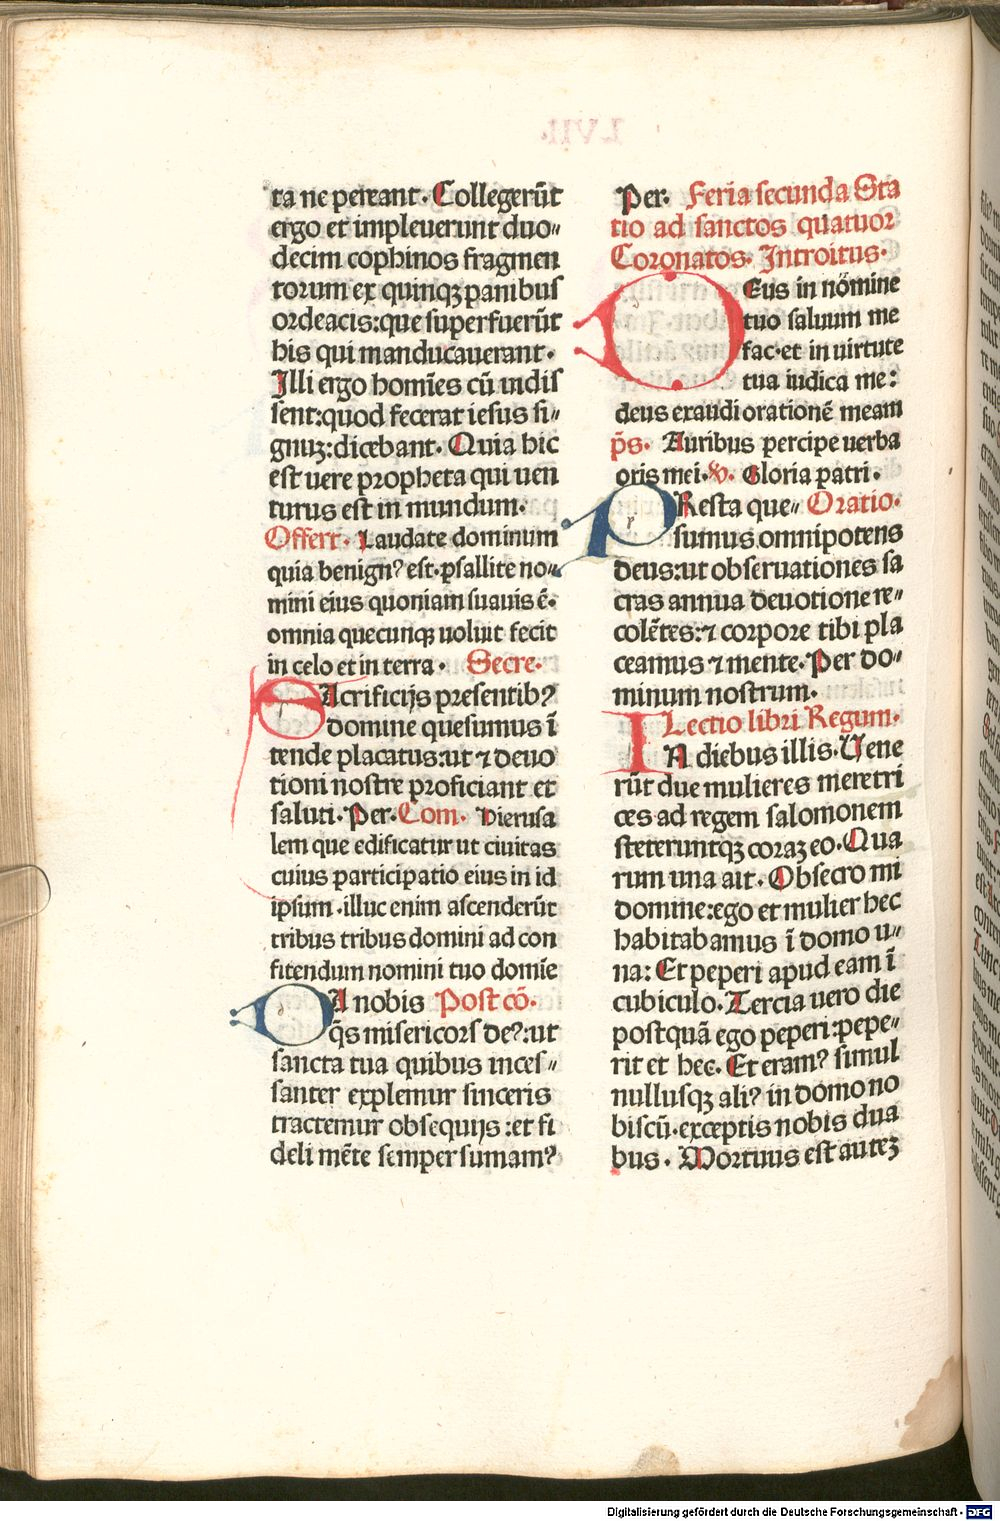 ta ne pereant. Collegerūt
ergo et impleuerunt duo„
decim cophinos fragmen
torum ex quinqꝫ panibus
ordeacis:que superfuerūt
his qui manducauerant.
Illi ergo homīes cū uidis
sent:quod fecerat iesus si„
gnuꝫ:dicebant. Quia hic
est uere propheta qui uen
turus est in mundum.
Offert. Laudate dominum
quia benignꝰ est.psallite no„
mini eius quoniam suauis ē.
omnia quecunqꝫ uoluit fecit
in celo et in terra. Secre.
SAcrificijs presentibꝰ
domine quesumus ī
tende placatus:ut ⁊ deuo
tioni nostre proficiant et
saluti. Per. Com. Hierusa
lem que edificatur ut ciuitas
cuius participatio eius in id
ipsum.illuc enim ascenderūt
tribus tribus domini ad con
fitendum nomini tuo domīe
DA nobis Post cō.
q̄s misericors deꝰ:ut
sancta tua quibus inces„
santer explemur sinceris
tractemur obsequijs:et fi
deli mēte semper sumamꝰ
Per. Feria secunda Sta
tio ad sanctos quatuor
Coronatos. Introitus.
DEus in nōmine
tuo saluum me
fac.et in uirtute
tua iudica me:
deus exaudi orationē meam
p̄s. Auribus percipe uerba
oris mei. ꝟ. Gloria patri.
PResta que„ Oratio.
sumus omnipotens
deus:ut obseruationes sa
cras annua deuotione re„
colētes:⁊ corpore tibi pla
ceamus ⁊ mente. Per do„
minum nostrum.
Lectio libri Regum.
IN diebus illis. Uene
rūt due mulieres meretri
ces ad regem salomonem
steteruntqꝫ coraꝫ eo. Qua
rum una ait. Obsecro mi
domine:ego et mulier hec
habitabamus ī domo u„
na: Et peperi apud eam ī
cubiculo. Tercia uero die
postquā ego peperi:pepe„
rit et hec. Et eramꝰ simul
nullusqꝫ aliꝰ in domo no
biscū.exceptis nobis dua
bus. Mortuus est auteꝫ
Digitalisierung gefördert durch die Deutsche Forschungsgemeinschaft - DFG